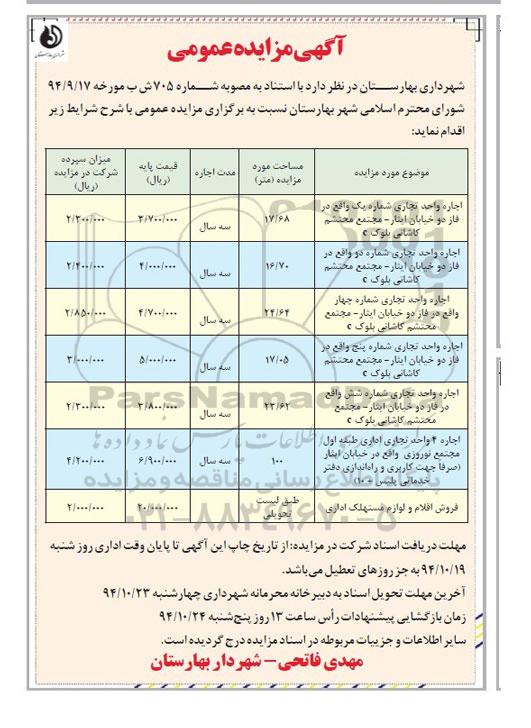 شهرداری بهارستان
آگهی مزایده عمومی
شهرداری بهارستان در نظر دارد با استناد به مصوبه شماره ۷۰۵ ش ب مورخه ۹۴/۹/۱۷
شورای محترم اسلامی شهر بهارستان نسبت به برگزاری مزایده عمومی با شرح شرایط زیر
اقدام نماید:
موضوع مورد مزایده
مساحت مورد
مزایده (متر)
مدت اجاره
قیمت پایه
(ریال)
میزان سپرده
شرکت در مزایده
(ریال)
اجاره واحد تجاری شماره یک واقع در
فاز دو خیابان ایثار- مجتمع محتشم
کاشانی بلوک c
۱۷/۶۸
سه سال
۳/۷۰۰/۰۰۰
۲/۲۰۰/۰۰۰
اجاره واحد تجاری شماره دو واقع در
فاز دو خیابان ایثار- مجتمع محتشم
کاشانی بلوک c
۱۶/۷۰
سه سال
۴/۰۰۰/۰۰۰
۲/۴۰۰/۰۰۰
اجاره واحد تجاری شماره چهار
واقع در فاز دو خیابان ایثار- مجتمع
محتشم کاشانی بلوک c
۲۴/۶۴
سه سال
۴/۷۰۰/۰۰۰
۲/۸۵۰/۰۰۰
اجاره واحد تجاری شماره پنج واقع در
فاز دو خیابان ایثار- مجتمع محتشم
کاشانی بلوک c
۱۷/۰۵
سه سال
۵/۰۰۰/۰۰۰
۳/۰۰۰/۰۰۰
اجاره واحد تجاری شماره شش واقع
در فاز دو خیابان ایثار- مجتمع
محتشم کاشانی بلوک c
۲۳/۶۲
سه سال
۳/۸۰۰/۰۰۰
۲/۳۰۰/۰۰۰
اجاره ۴ واحد تجاری اداری طبقه اول
مجتمع نوروزی واقع در خیابان ایثار
(صرفا جهت کاربری و راه‌اندازی دفتر
خدماتی پلیس +۱۰)
۱۰۰
سه سال
۶/۹۰۰/۰۰۰
۴/۲۰۰/۰۰۰
فروش اقلام و لوازم مستهلک اداری
طبق لیست
تحویلی
۲۰/۰۰۰/۰۰۰
۲/۰۰۰/۰۰۰
ParsNamadData
۰۲۱-۸۸۳۴۹۶۷۰-۵
مهلت دریافت اسناد شرکت در مزایده: از تاریخ چاپ این آگهی تا پایان وقت اداری روز شنبه
۹۴/۱۰/۱۹ به جز روزهای تعطیل می‌باشد.
آخرین مهلت تحویل اسناد به دبیرخانه محرمانه شهرداری چهارشنبه ۹۴/۱۰/۲۳
زمان بازگشایی پیشنهادات رأس ساعت ۱۳ روز پنج‌شنبه ۹۴/۱۰/۲۴
سایر اطلاعات و جزییات مربوطه در اسناد مزایده درج گردیده است.
مهدی فاتحی - شهردار بهارستان